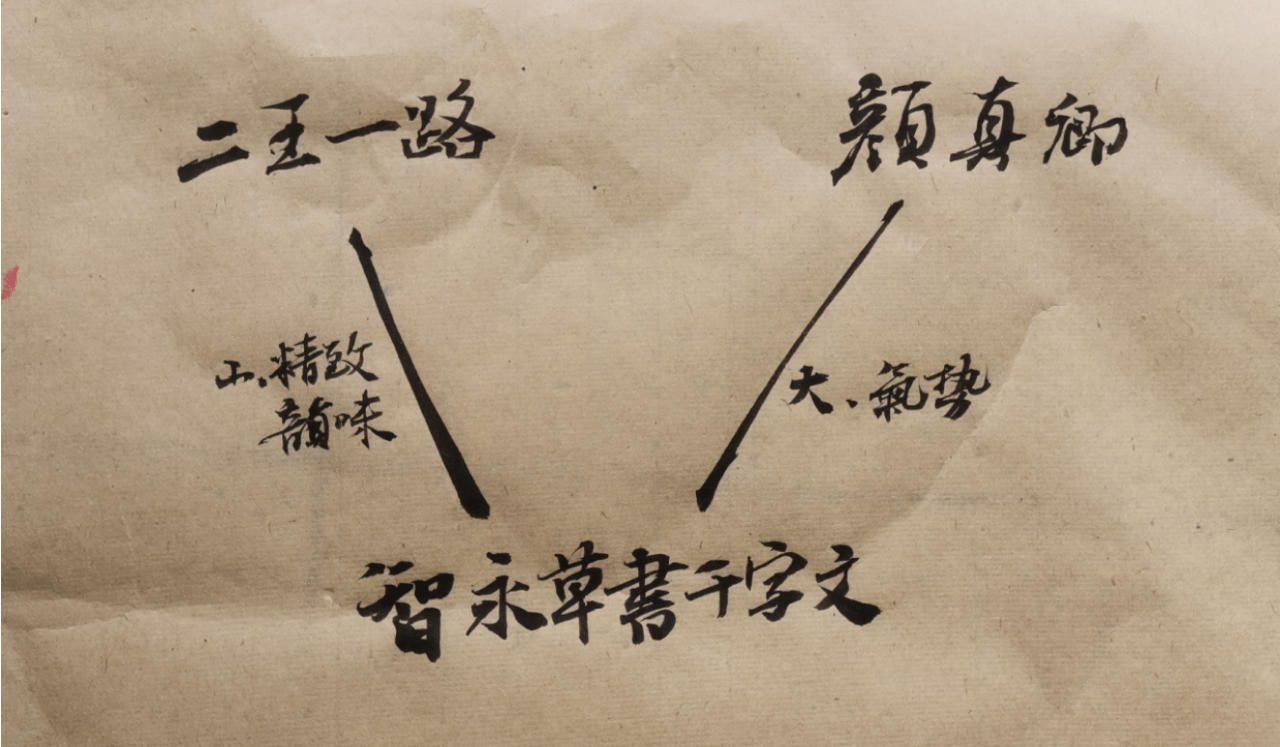 二王一路
顔真卿
小、精致
韻味
大、氣势
智永草書千字文